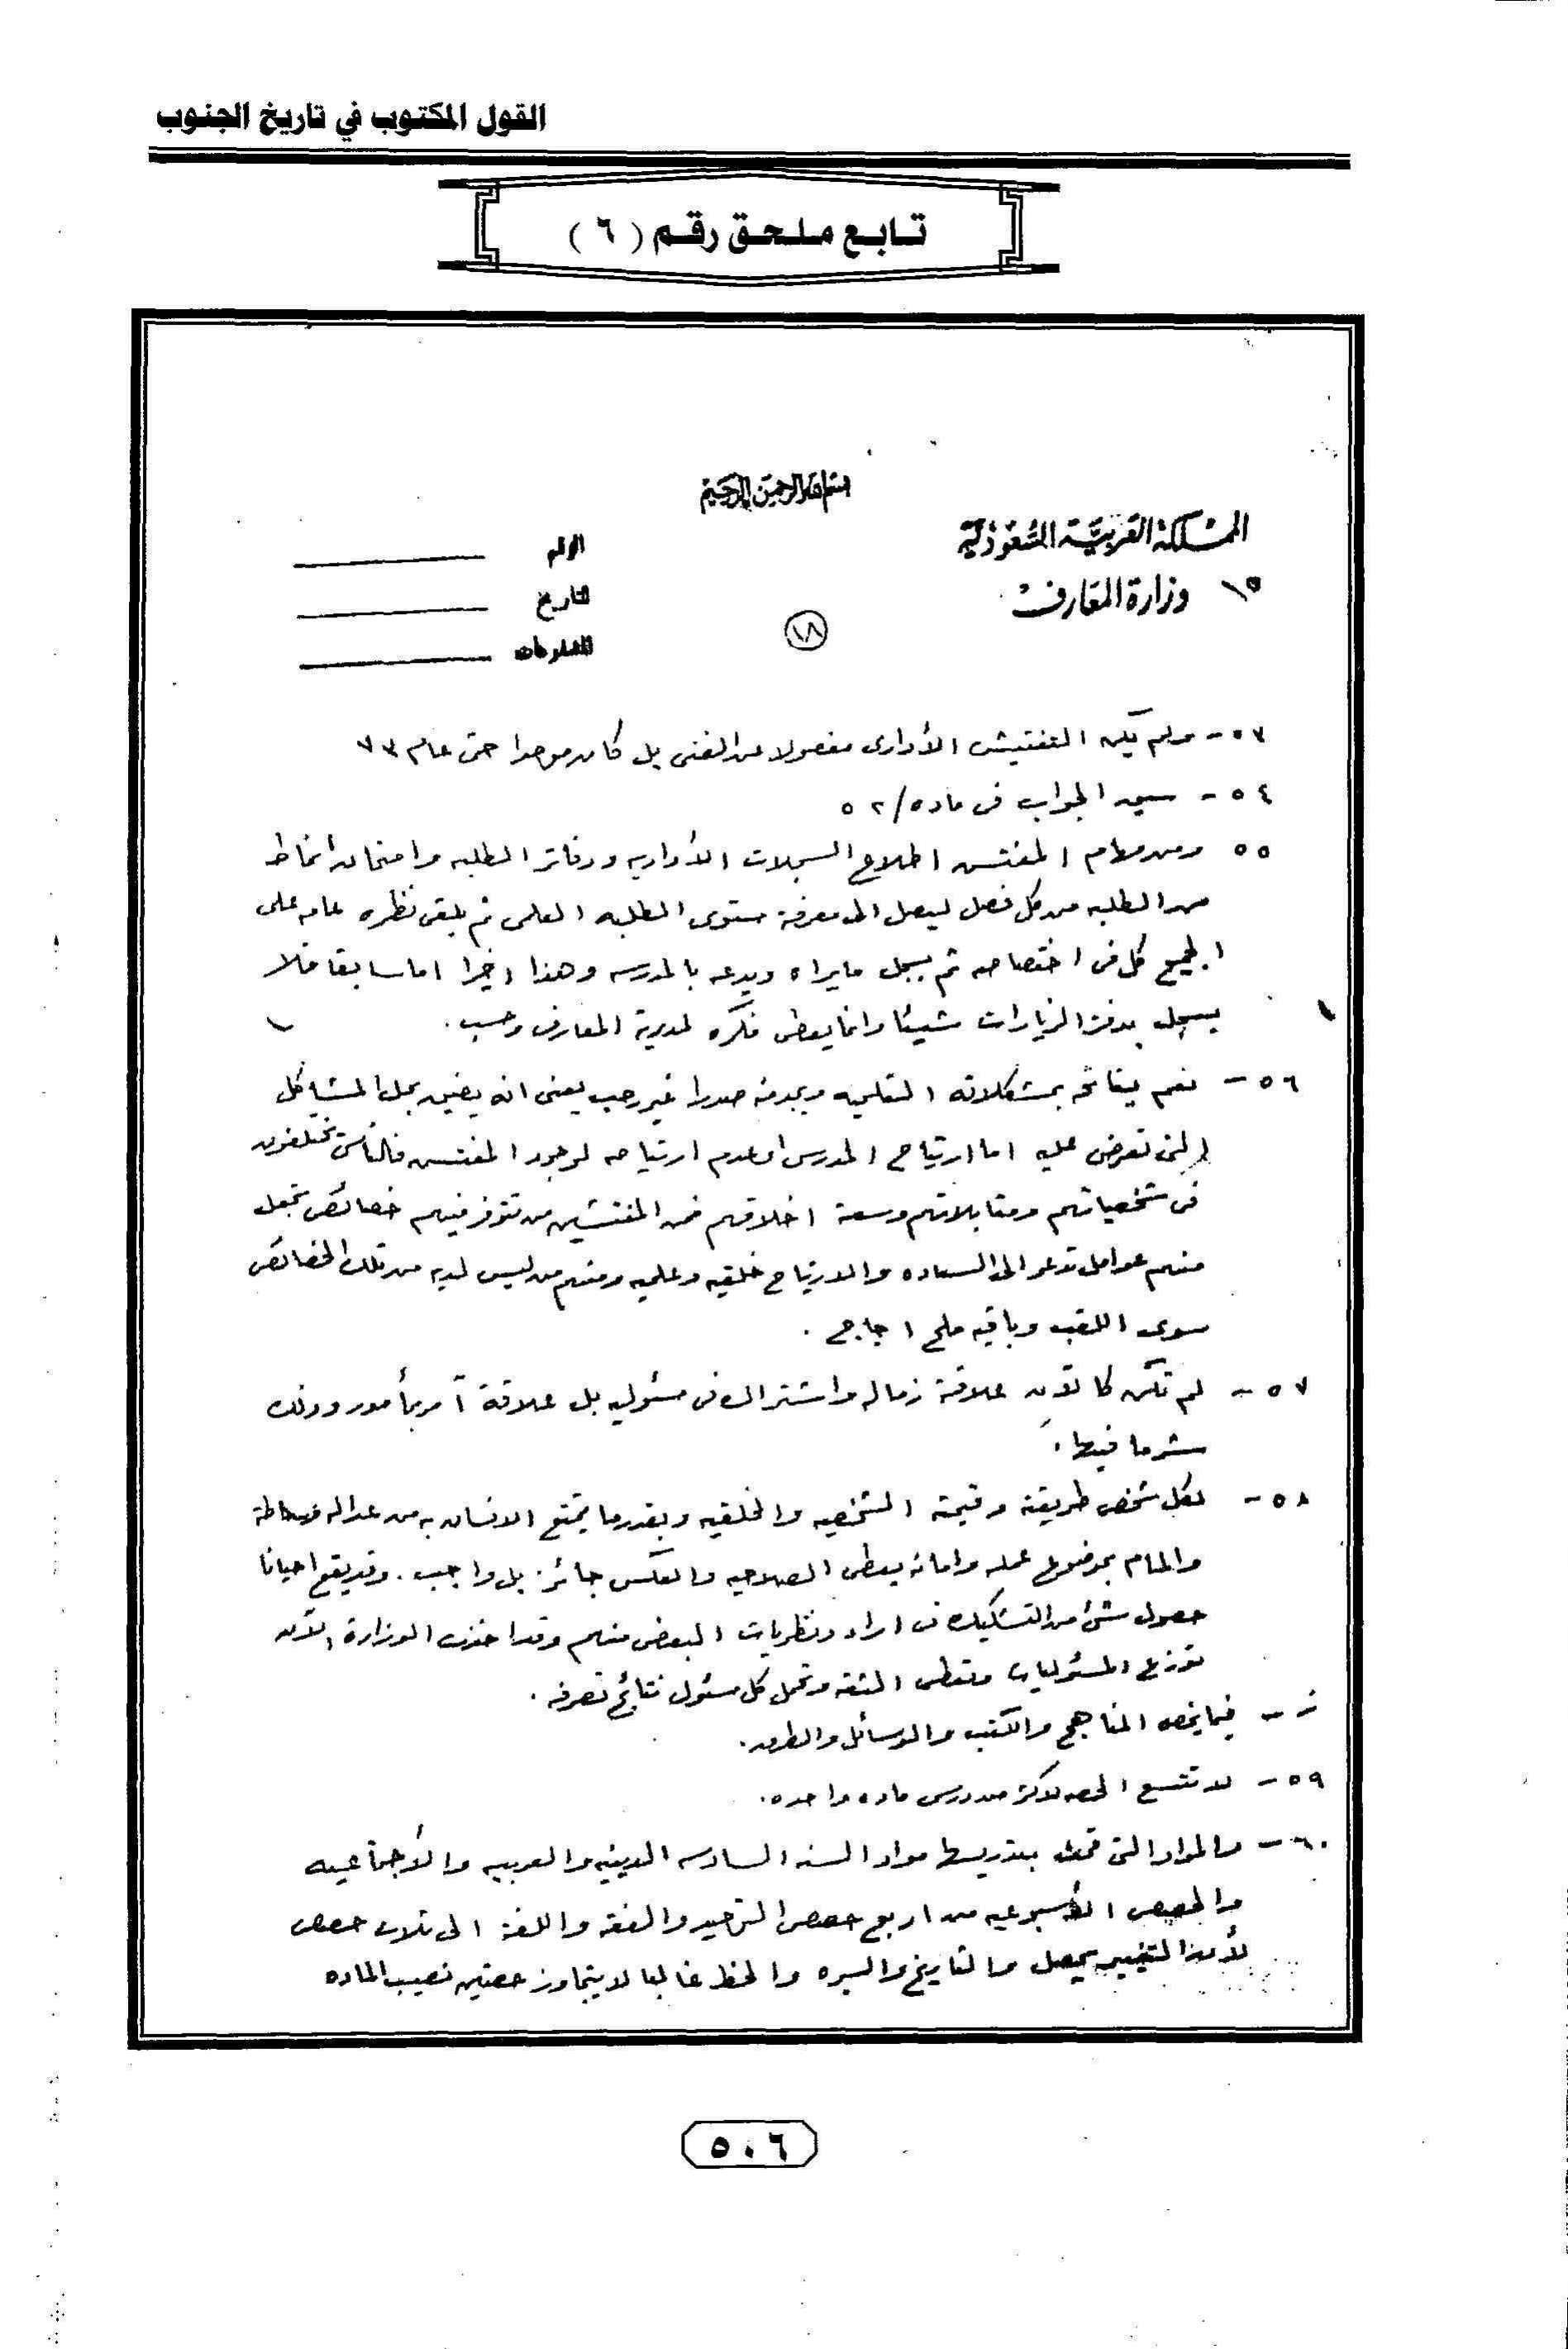 القول المكتوب في تاريخ الجنوب
تابع ملحق رقم ( ٦ )
بسم الله الرحمن الرحيم
المملكة العربية السعودية
وزارة المعارف
الرقم
التاريخ
المشفوعات
١٨
٥٣ - ولم يكن التفتيش الأدارى مفصولا عن الفنى بل كان موحدا حتى عام ٧٣
٥٤ - سبق الجواب فى ماده / ٥٢
٥٥ ومن مهام المفتش اطلاع السجلات الأداريه ودفاتر الطلبه وامتحان انماط
من الطلبه من كل فصل ليصل الى معرفة مستوى الطلبه العلمى ثم يلقى نظره عامه على
الجميع كل فى اختصاصه ثم يسجل ما يراه ويدعه بالمدرسه وهذا اخيرا اما سابقا فلا
يسجل بدفتر الزيارات شيئا وانما يعطى فكره لمديرية المعارف وحسب .
٥٦ - نعم يفاتحه بمشكلاته التعليميه ويجد منه صدرا غير رحب يعنى انه يضيق بحل المشاكل
التى تعرض عليه اما ارتياح المدرس او عدم ارتياحه لوجود المفتش فالناس يختلفون
فى شخصياتهم ومقابلاتهم وسعة اخلاقهم فمن المفتشين من تتوفر فيهم خصائص تجعل
منهم عوامل تدعو الى السعاده والارتياح خلقيه وعلميه ومنهم من ليس لديه من تلك الخصائص
سوى اللقب وباقيه ملح اجاج .
٥٧ - لم تكن كالآن علاقة زماله واشتراك فى مسئوليه بل علاقة آمر بمأمور وذلك
شر ما فيها .
٥٨ - لكل شخص طريقته وقيمته الشخصيه والخلقيه وبقدر ما يتمتع الانسان به من عداله
والمام بموضوع عمله وامانه يعطى الصلاحيه والعكس جائز بل واجب . وقد يقع احيانا
حصول شئ من التشكيك فى اراء ونظريات البعض منهم وقد اخذت الوزارة الآن
توزع المسئوليات وتعطى الثقه وتحمل كل مسئول نتائج تصرفه .
ز - فيما يخص المناهج والكتب والوسائل والطرق .
٥٩ - لا تتسع الحصه لاكثر من درس ماده واحده .
٦٠ - والمواد التى قمت بتدريسها مواد السنه السادسه الدينيه والعربيه والأجتماعيه
والحصص الأسبوعيه من اربع حصص التوحيد والفقه واللغة الى ثلاث حصص
لأن التغيير يحصل والتاريخ والسيره والخط غالبا لا يتجاوز حصتين نصيب الماده
٥٠٦